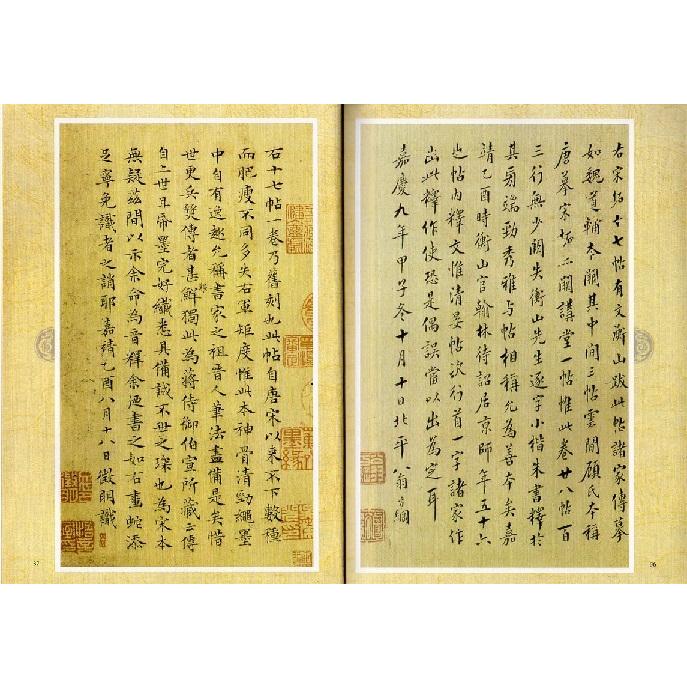 右宋拓十七帖有文衡山跋此帖諸家傳摹
如魏道輔本闕其中間三帖雲間顧氏本稱
唐摹宋拓而闕講堂一帖惟此卷廿八帖百
三行無少闕失衡山先生逐字小楷朱書釋於
其旁端勁秀雅与帖相稱允為善本矣嘉
靖乙酉時衡山官翰林待詔居京師年五十六
也帖內釋文惟清晏帖行首一字諸家作
出此釋作使恐是偶誤當以出為定耳
嘉慶九年甲子冬十月十日北平翁方綱
96
右十七帖一卷乃舊刻也此帖自唐宋以來不下數種
而肥瘦不同多失右軍矩度惟此本神骨清勁繩墨
中自有逸趣允稱書家之祖晉人筆法盡備是矣惜
世更兵燹傳者甚鮮獨此為蔣侍御伯宣所藏云傳
自二世且帋墨完好纖悉具備誠不世之琛也為宋本
無疑茲間以示余命為音釋余迺書之如右畫蛇添
足寧免識者之誚耶嘉靖乙酉八月十八日徵明識
97